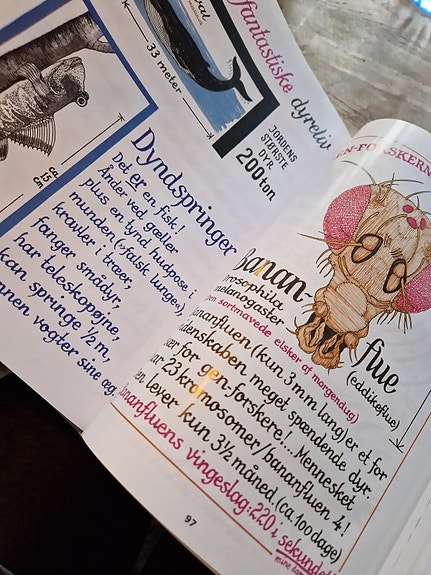 fantastiske dyreliv
33 meter
JORDENS
STØRSTE
DYR
200 ton
ca.
15
cm
Dyndspringer
Det er en fisk!
Ånder ved gæller
plus en tynd hudpose i
munden (»falsk lunge«),
kravler i træer,
fanger smådyr,
har teleskopøjne,
kan springe ½ m,
vogter sine æg.
EN-FORSKERN
Banan-
flue
melanogaster
(eddikeflue)
sortmavede elsker af morgendug)
bananfluen (kun 3 mm lang) er et for
meget spændende dyr.
for gen-forskere!... Mennesket
23 kromosomer/bananfluen 4!
lever kun 3½ måned (ca 100 dage)
bananfluens vingeslag: 220 i
97